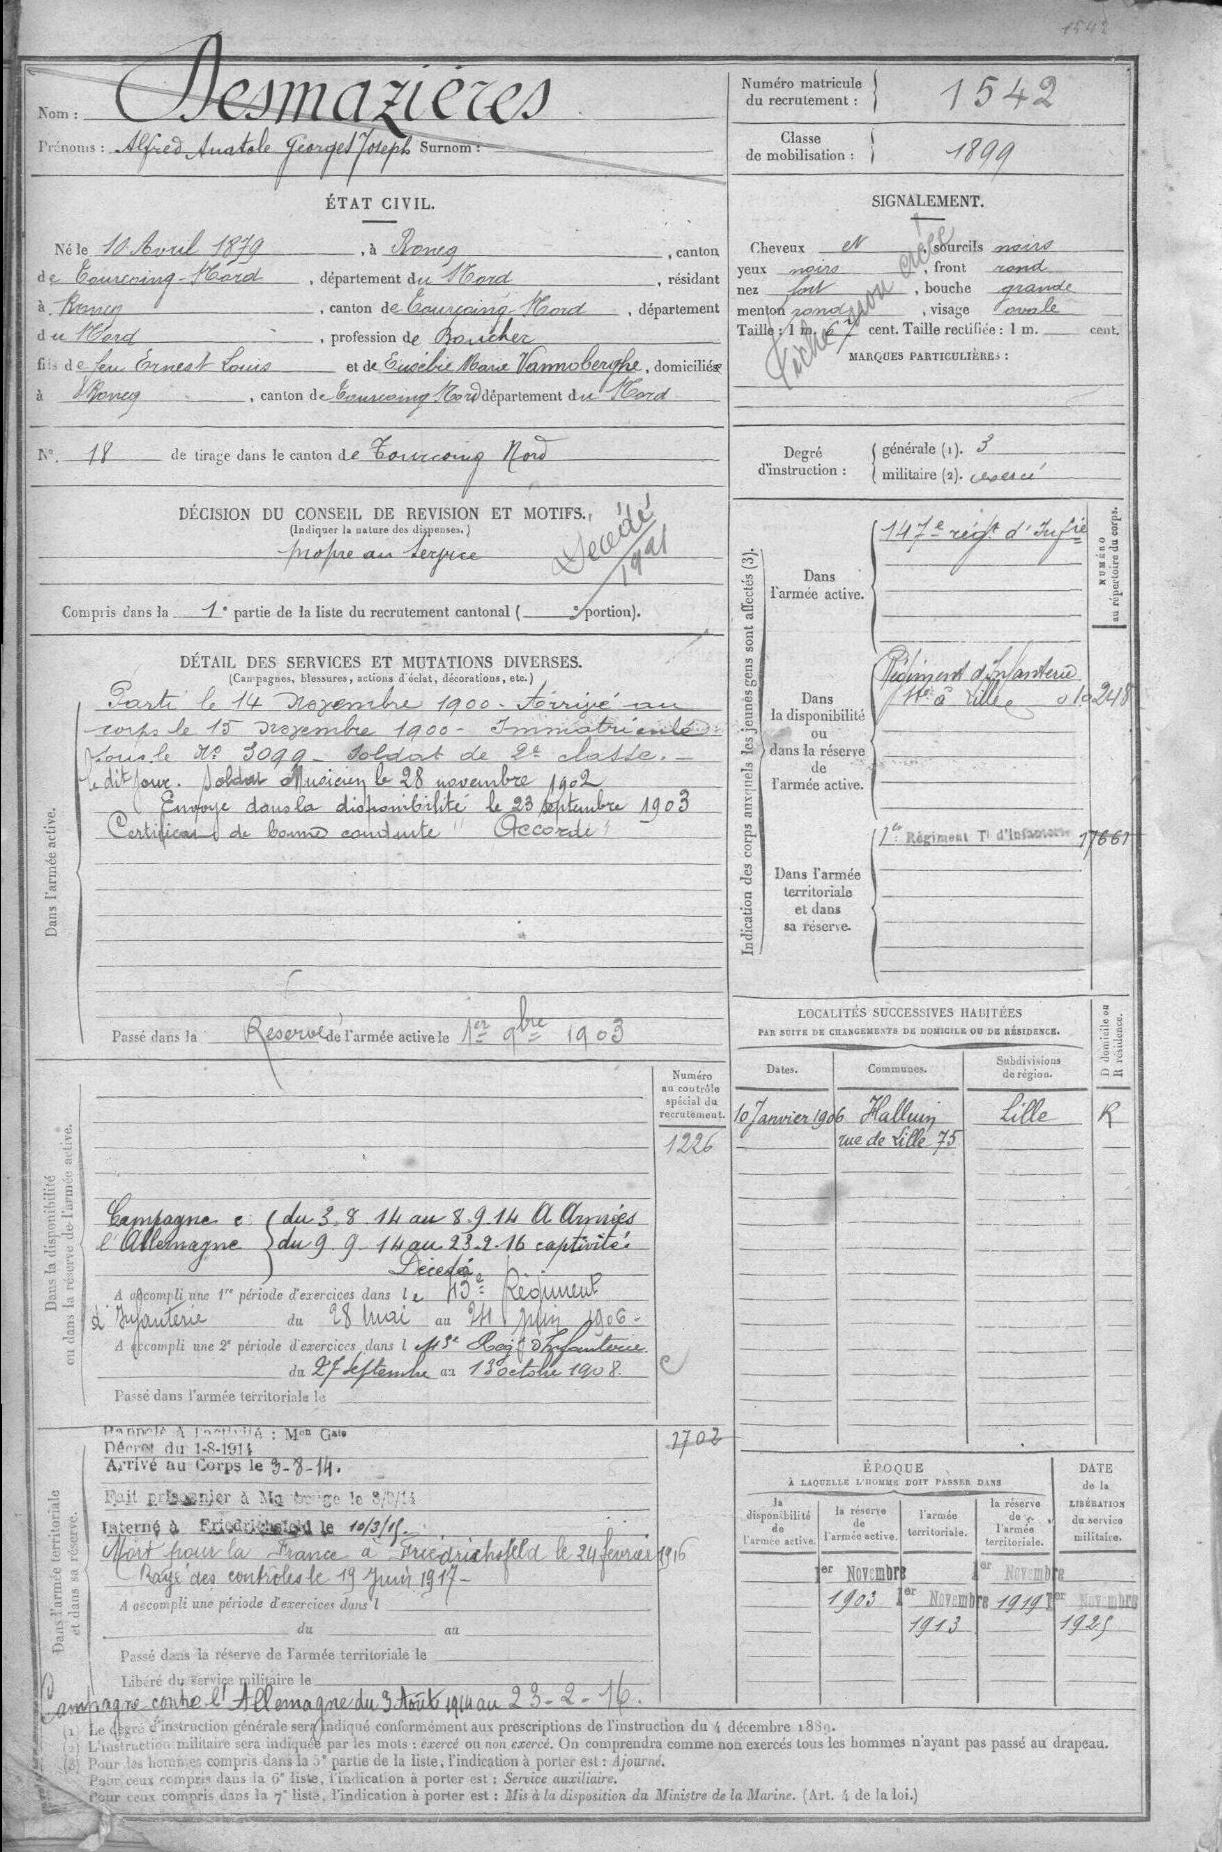 1542
Nom : Desmazières
Prénoms : Alfred Anatole Georges Joseph Surnom :
Numéro matricule du recrutement : 1542
Classe de mobilisation : 1899
ÉTAT CIVIL.
Né le 10 Avril 1879, à Roncq, canton
de Tourcoing-Nord, département du Nord, résidant
à Roncq, canton de Tourcoing Nord, département
du Nord, profession de Boucher
fils de feu Ernest Louis et de Eusébie Marie Vannoberghe, domiciliés
à Roncq, canton de Tourcoing Nord département du Nord
N° 18 de tirage dans le canton de Tourcoing Nord
SIGNALEMENT.
Cheveux et sourcils noirs
yeux noirs, front rond
nez fort, bouche grande
menton rond, visage ovale
Taille : 1 m. 67 cent. Taille rectifiée : 1 m. cent.
MARQUES PARTICULIÈRES :
Fiche non créée
Degré d'instruction :
générale (1). 3
militaire (2). exercé
DÉCISION DU CONSEIL DE REVISION ET MOTIFS.
(Indiquer la nature des dispenses.)
propre au service
Décédé
Compris dans la 1e partie de la liste du recrutement cantonal ( e portion).
DÉTAIL DES SERVICES ET MUTATIONS DIVERSES.
(Campagnes, blessures, actions d'éclat, décorations, etc.)
Dans l'armée active.
Parti le 14 Novembre 1900 - Arrivé au
corps le 15 Novembre 1900 - Immatriculé
sous le No 3099 - Soldat de 2e classe. -
le dit jour. Soldat Musicien le 28 novembre 1902
Envoyé dans la disponibilité le 23 septembre 1903
Certificat de bonne conduite "Accordé"
Passé dans la Réserve de l'armée active le 1er 9bre 1903
Indication des corps auxquels les jeunes gens sont affectés (3).
NUMÉRO au répertoire du corps.
Dans l'armée active.
147e régt d'Infie
Dans la disponibilité ou dans la réserve de l'armée active.
Régiment d'Infanterie
à Lille 010248
Dans l'armée territoriale et dans sa réserve.
1er Régiment Tl d'Infanterie 17661
LOCALITÉS SUCCESSIVES HABITÉES
PAR SUITE DE CHANGEMENTS DE DOMICILE OU DE RÉSIDENCE.
D domicile ou R résidence.
Dates. Communes. Subdivisions de région.
10 Janvier 1906 Halluin Lille R
rue de Lille 75
Dans la disponibilité ou dans la réserve de l'armée active.
Numéro au contrôle spécial du recrutement.
1226
Campagne c. du 3.8.14 au 8.9.14 A Armées
l'Allemagne du 9.9.14 au 23.2.16 captivité.
Décédé
A accompli une 1re période d'exercices dans le 43e Régiment
d'Infanterie du 28 mai au 24 juin 1906 -
A accompli une 2e période d'exercices dans l 43e Régt d'Infanterie
du 27 septembre au 13 octobre 1908.
Passé dans l'armée territoriale le
Dans l'armée territoriale et dans sa réserve.
2702
Rappelé à l'activité : Mon Gale
Décret du 1-8-1914
Arrivé au Corps le 3-8-14.
Fait prisonnier à Maubeuge le 8/9/14
Interné à Friedrichsfeld le 10/3/15.
Mort pour la France à Friedrichsfeld le 24 février 1916
Rayé des contrôles le 19 Juin 1917 -
A accompli une période d'exercices dans l
du au
Passé dans la réserve de l'armée territoriale le
Libéré du service militaire le
Campagne contre l'Allemagne du 3 Août 1914 au 23-2-16.
ÉPOQUE
À LAQUELLE L'HOMME DOIT PASSER DANS
la disponibilité de l'armée active.
la réserve de l'armée active.
l'armée territoriale.
la réserve de l'armée territoriale.
DATE de la LIBÉRATION du service militaire.
1er Novembre 1903
1er Novembre 1913
1er Novembre 1919
1er Novembre 1925
(1) Le degré d'instruction générale sera indiqué conformément aux prescriptions de l'instruction du 4 décembre 1889.
(2) L'instruction militaire sera indiquée par les mots : exercé ou non exercé. On comprendra comme non exercés tous les hommes n'ayant pas passé au drapeau.
(3) Pour les hommes compris dans la 5e partie de la liste, l'indication à porter est : Ajourné.
Pour ceux compris dans la 6e liste, l'indication à porter est : Service auxiliaire.
Pour ceux compris dans la 7e liste, l'indication à porter est : Mis à la disposition du Ministre de la Marine. (Art. 4 de la loi.)